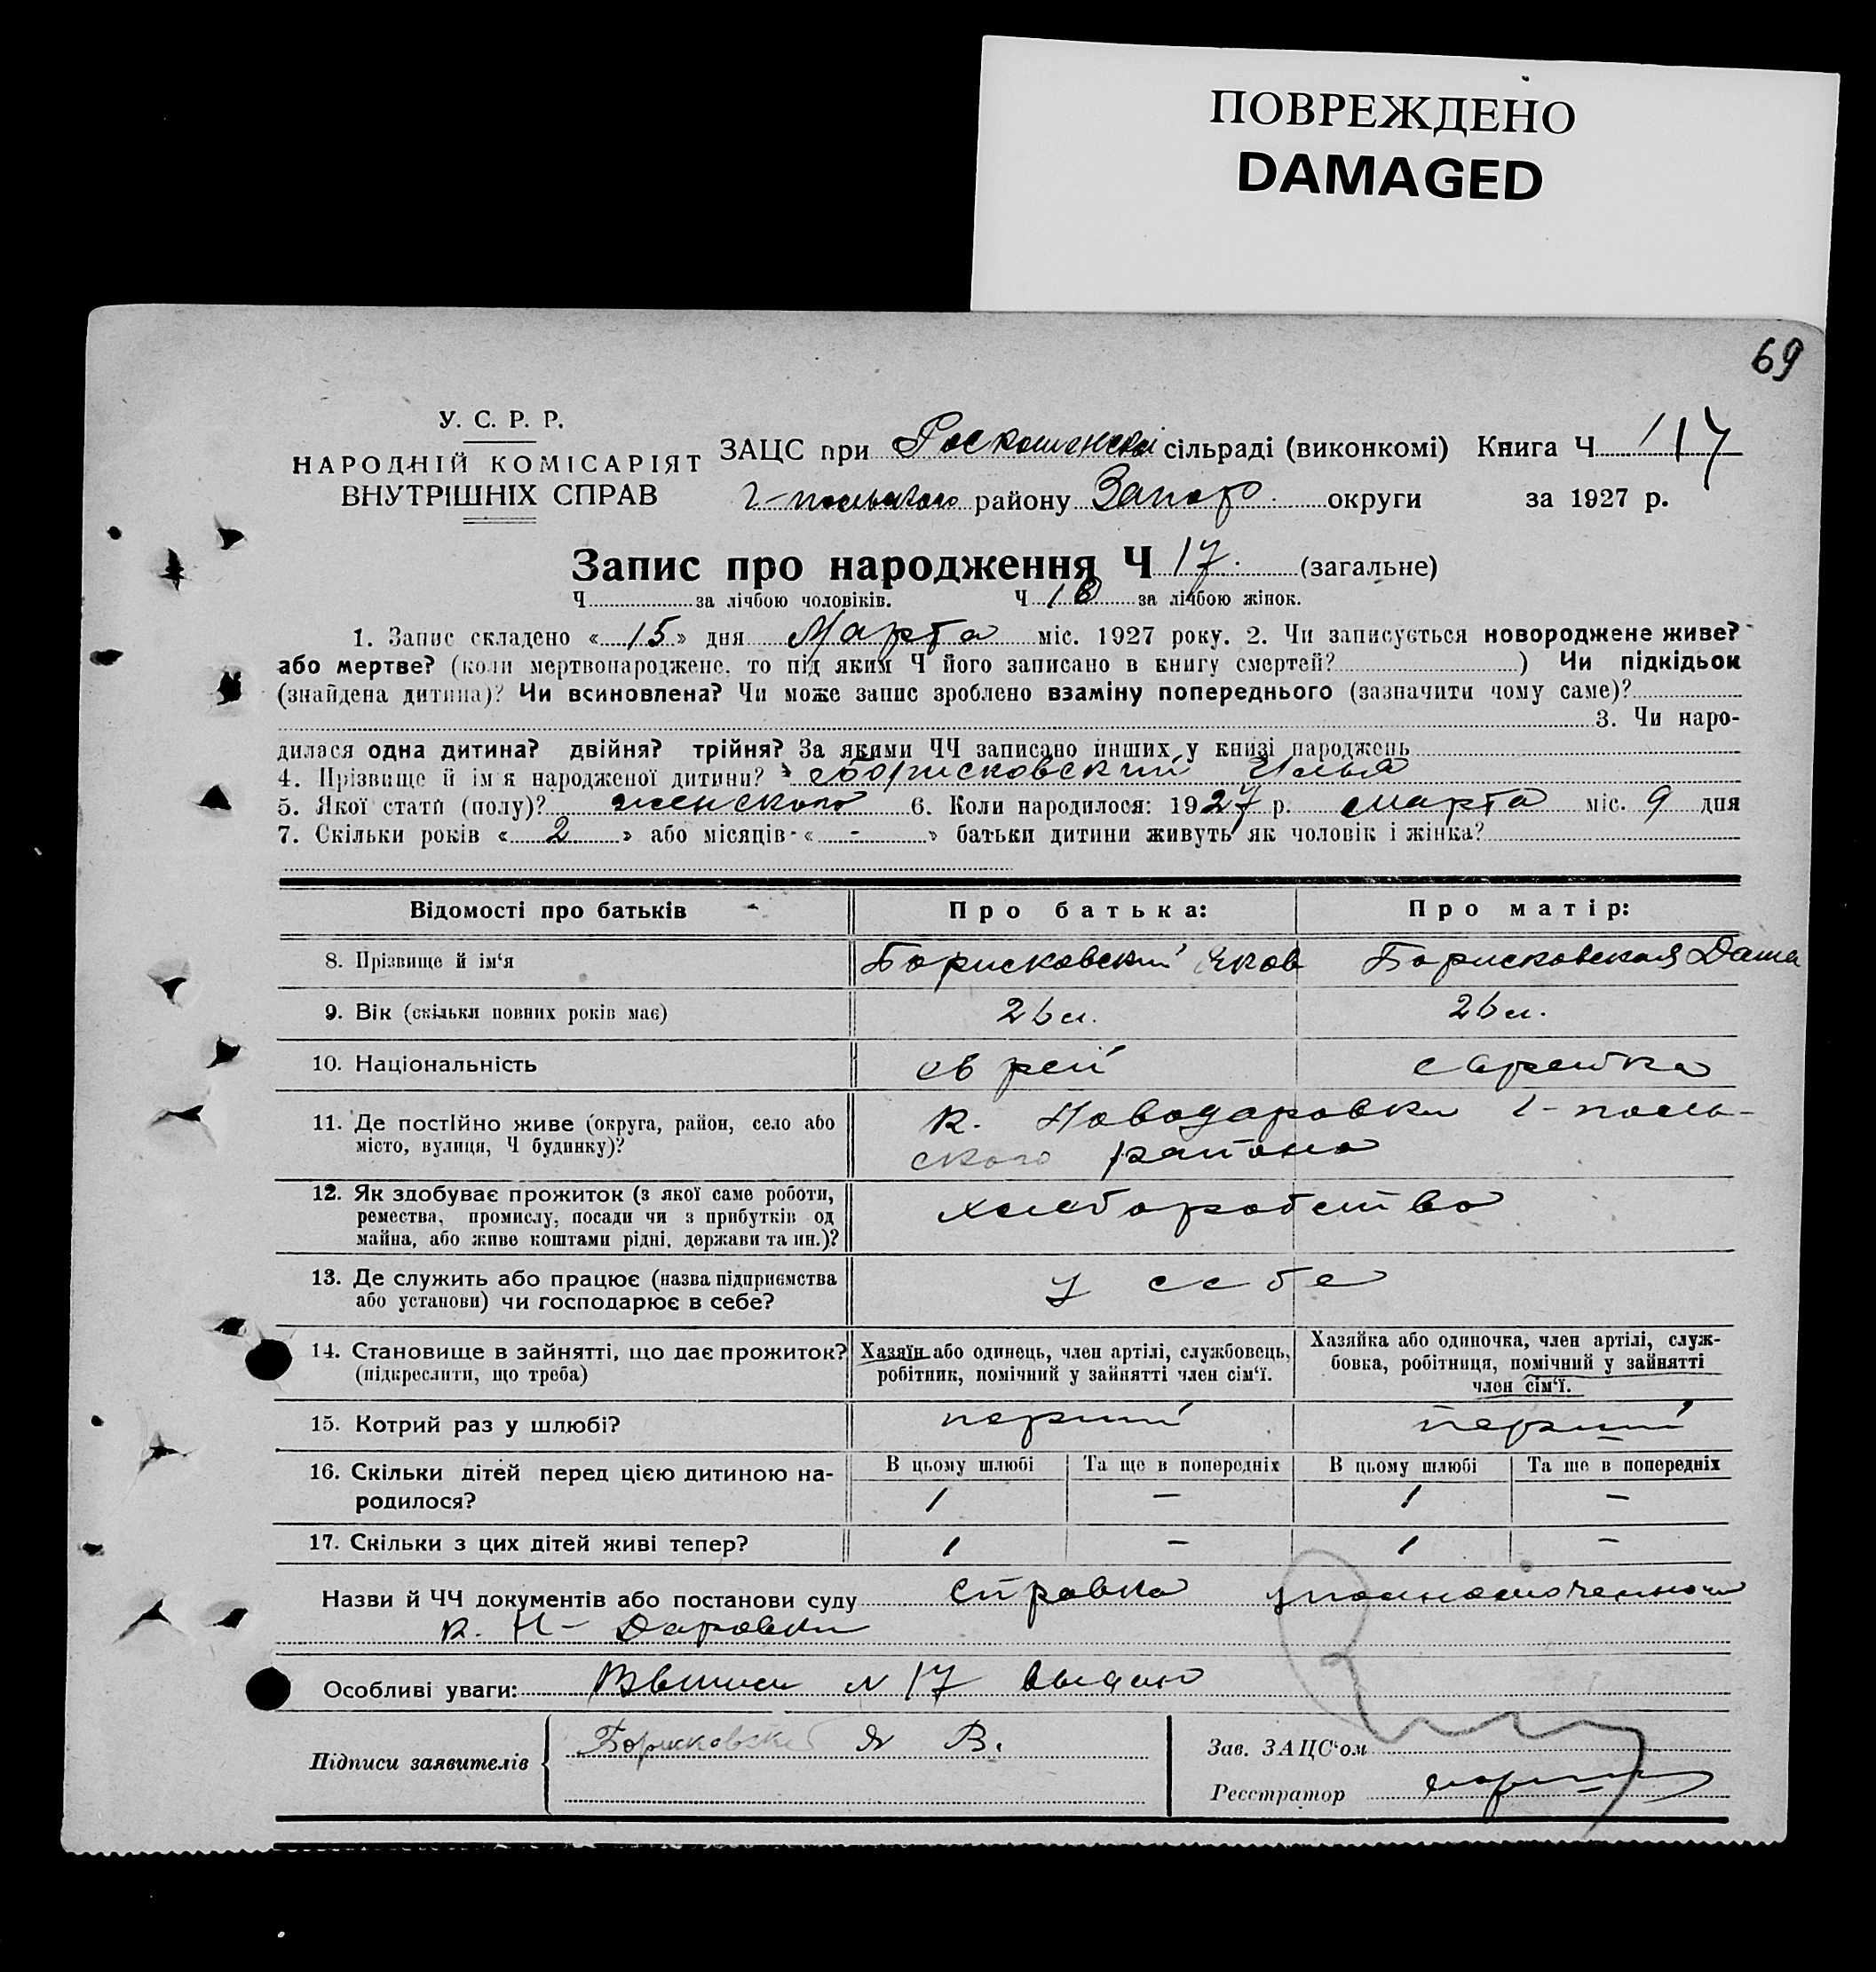 ПОВРЕЖДЕНО
DAMAGED
69
У. С. Р. Р.
НАРОДНІЙ КОМІСАРІЯТ
ВНУТРІШНІХ СПРАВ
ЗАЦС при Роскошенской сільраді (виконкомі) Книга Ч 117
району Запор. округи за 1927 р.
Запис про народження Ч 17. (загальне)
Ч за лічбою чоловіків. Ч 10 за лічбою жінок.
1. Запис складено «15» дня Марта міс. 1927 року. 2. Чи записується новороджене живе?
або мертве? (коли мертвонароджене, то під яким Ч його записано в книгу смертей? ) Чи підкідьок
(знайдена дитина)? Чи всиновлена? Чи може запис зроблено взаміну попереднього (зазначити чому саме)?
3. Чи наро-
дилася одна дитина? двійня? трійня? За якими ЧЧ записано инших у книзі народжень
4. Прізвище й ім'я народженої дитини? Борисковский Илья
5. Якої стати (полу)? женского 6. Коли народилося: 1927 р. марта міс. 9 дня
7. Скільки років «2» або місяців «-» батьки дитини живуть як чоловік і жінка?
Відомості про батьків Про батька: Про матір:
8. Прізвище й ім'я Борисковский Яков Борисковская Даша
9. Вік (скільки повних років має) 26 л. 26 л.
10. Національність еврей еврейка
11. Де постійно живе (округа, район, село або К. Новодаровки
місто, вулиця, Ч будинку)? ского района
12. Як здобуває прожиток (з якої саме роботи, хлеборобство
ремества, промислу, посади чи з прибутків од
майна, або живе коштами рідні, держави та ин.)?
13. Де служить або працює (назва підприємства у себе
або установи) чи господарює в себе?
14. Становище в зайнятті, що дає прожиток? Хазяїн або одинець, член артілі, службовець, Хазяйка або одиночка, член артілі, служ-
(підкреслити, що треба) робітник, помічний у зайнятті член сім'ї. бовка, робітниця, помічний у зайнятті
член сім'ї.
15. Котрий раз у шлюбі? перший перший
16. Скільки дітей перед цією дитиною на- В цьому шлюбі Та ще в попередніх В цьому шлюбі Та ще в попередніх
родилося? 1 — 1 —
17. Скільки з цих дітей живі тепер? 1 — 1 —
Назви й ЧЧ документів або постанови суду Справка уполномоченного
К. Н-Даровки
Особливі уваги: N 17
Підписи заявителів Борисковский Я В.
Зав. ЗАЦС'ом
Реєстратор